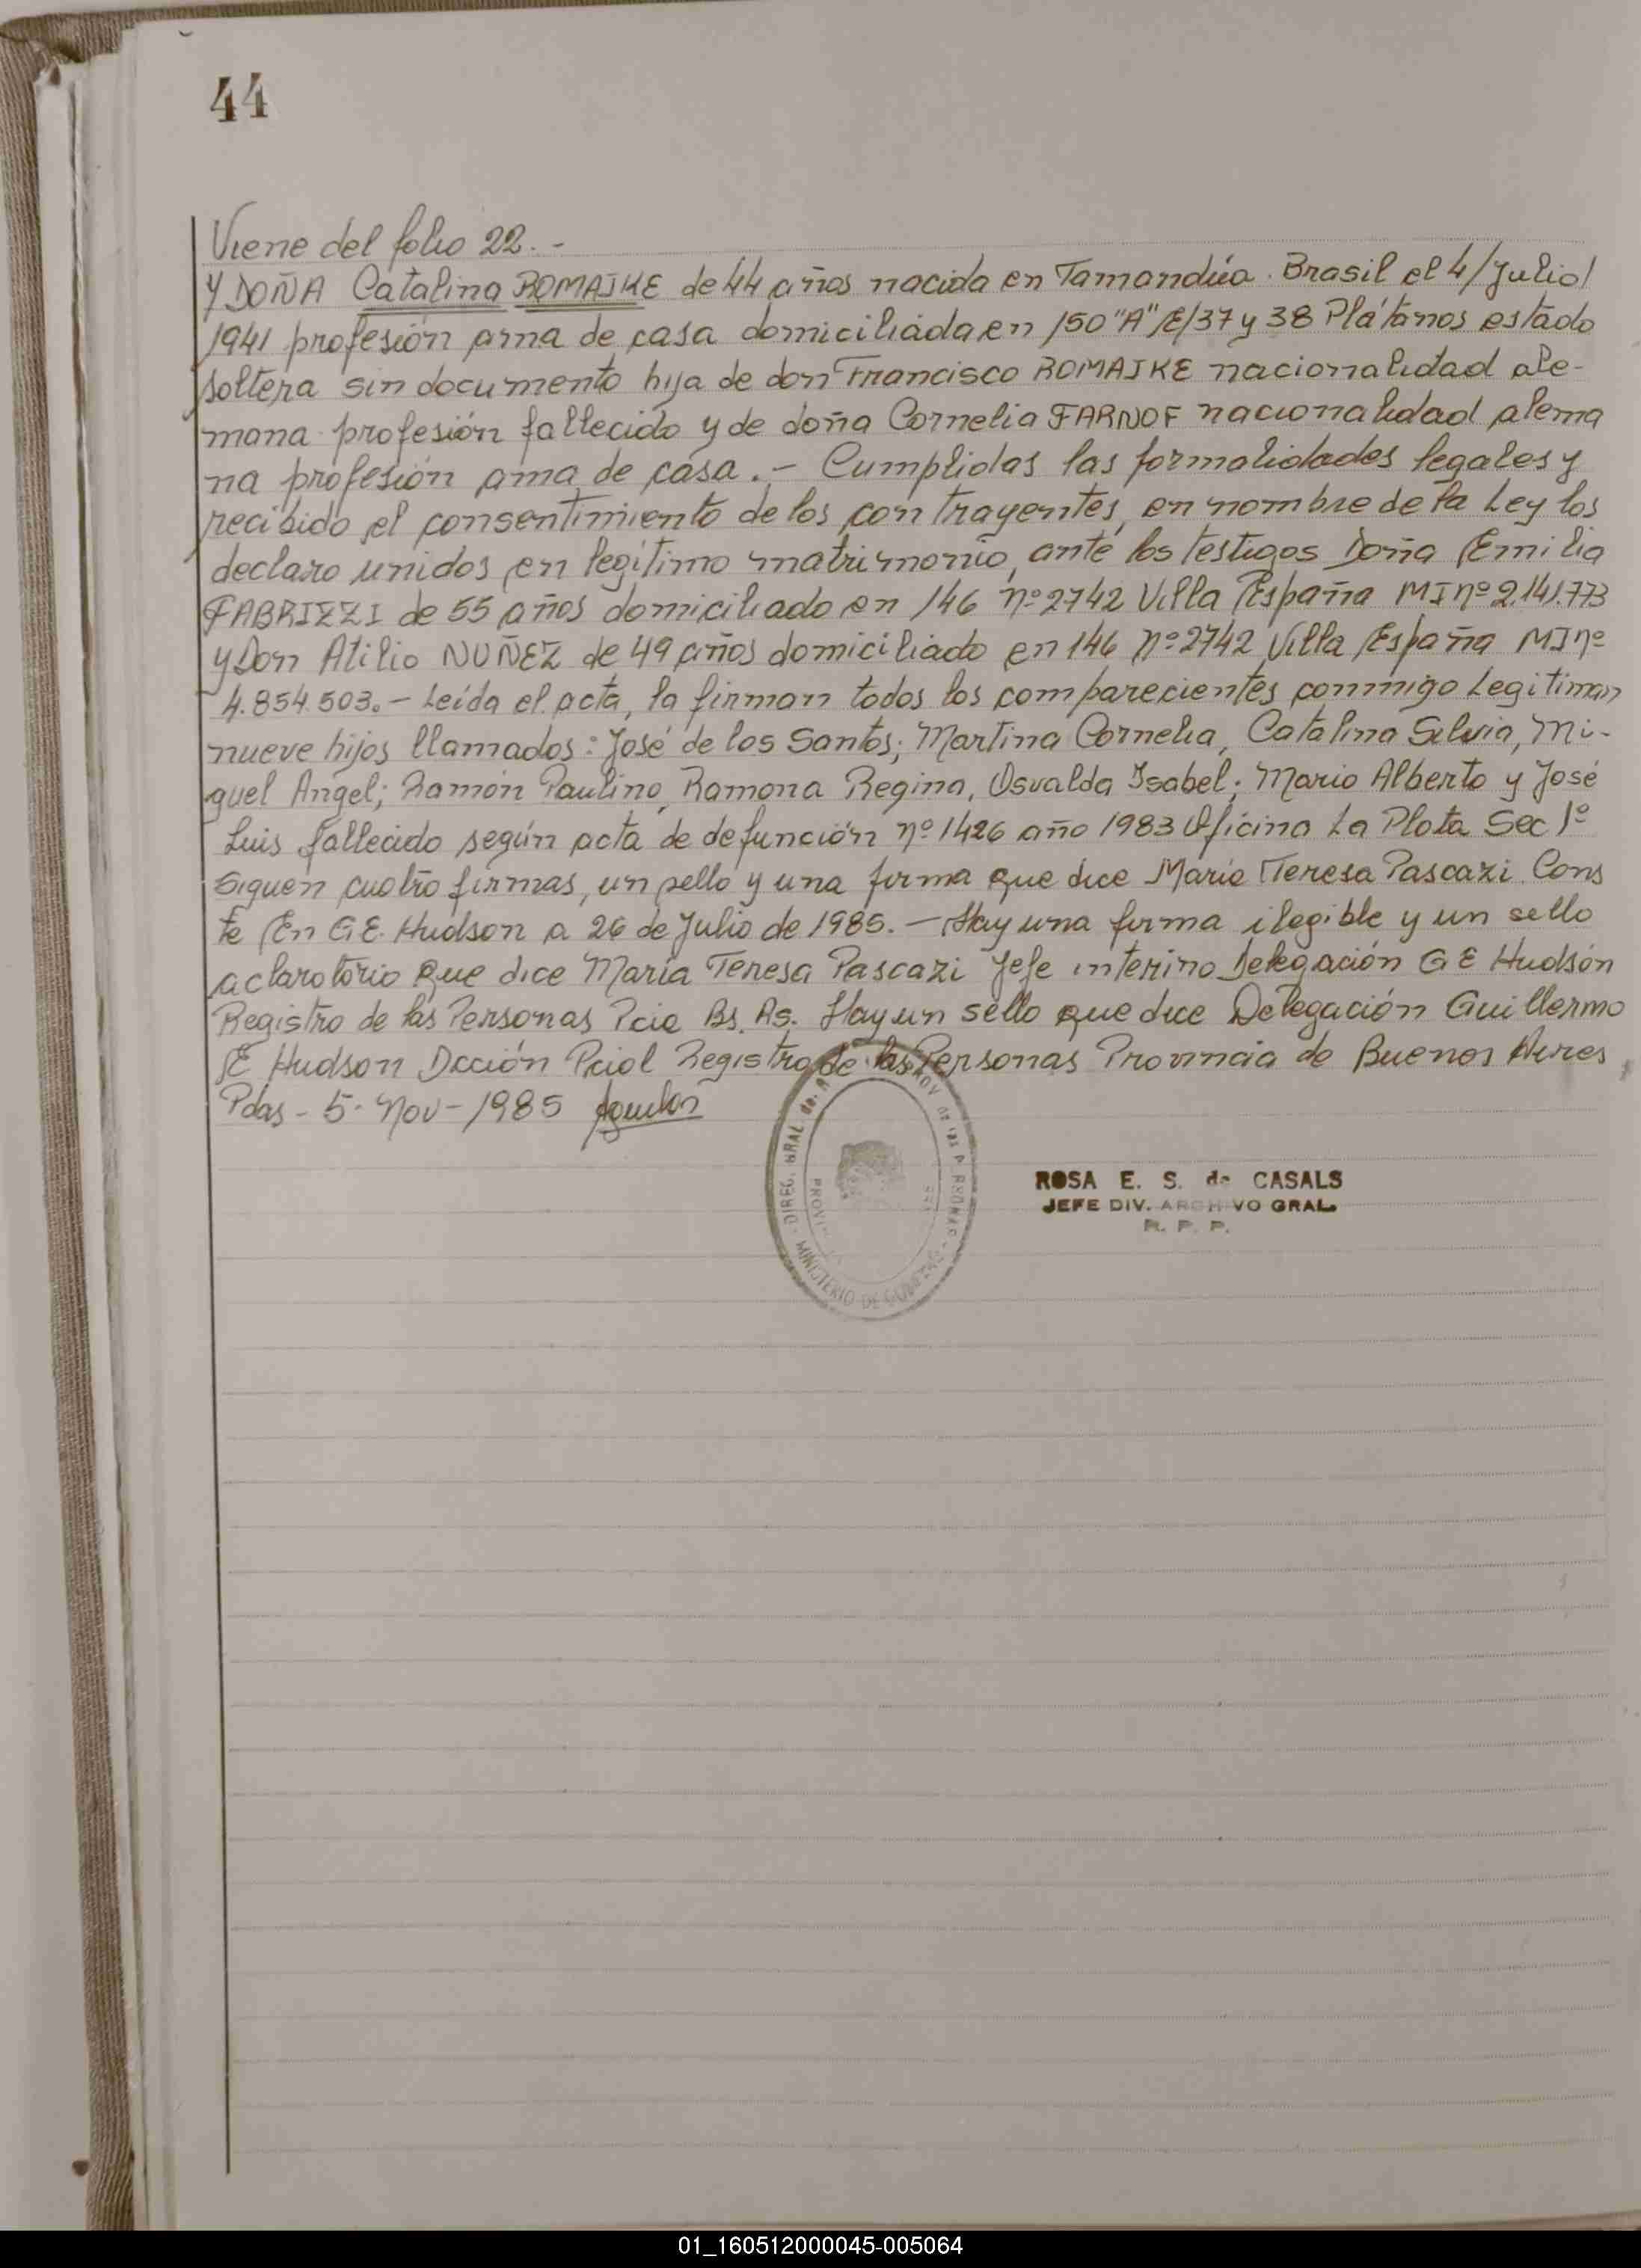 44
Viene del folio 22.-
Y DOÑA Catalina ROMAJKE de 44 años nacida en Tamandúa. Brasil el 4/Julio/
1941 profesión ama de casa domiciliada en 150"A"/E/37 y 38 Plátanos estado
soltera sin documento hija de don Francisco ROMAJKE nacionalidad ale-
mana profesión fallecido y de doña Cornelia FARNOF nacionalidad alema
na profesión ama de casa.- Cumplidas las formalidades legales y
recibido el consentimiento de los contrayentes, en nombre de la Ley los
declaro unidos en legítimo matrimonio, ante los testigos Doña Emilia
FABRIZZI de 55 años domiciliado en 146 nº 2742 Villa España MI nº 2.141.773
y Don Atilio NUÑEZ de 49 años domiciliado en 146 nº 2742 Villa España MI nº
4.854.503.- Leída el acta, la firman todos los comparecientes conmigo Legitiman
nueve hijos llamados: José de los Santos; Martina Cornelia, Catalina Silvia, Mi-
guel Angel; Ramón Paulino, Ramona Regina, Osvalda Isabel; Mario Alberto y José
Luis fallecido según acta de defunción nº 1426 año 1983 Oficina La Plata Sec 1º
Siguen cuatro firmas, un sello y una firma que dice María Teresa Pascazi. Cons
te En G E. Hudson a 26 de Julio de 1985.- Hay una firma ilegible y un sello
aclaratorio que dice María Teresa Pascazi Jefe interino Delegación G E Hudson
Registro de las Personas Pcia Bs. As. Hay un sello que dice Delegación Guillermo
E Hudson Dcción Pcial Registro de las Personas Provincia de Buenos Aires
Pdas - 5- Nov - 1985
DIREC. GRAL. MINISTERIO DE GOBIERNO
ROSA E. S. de CASALS
JEFE DIV. ARCHIVO GRAL.
R. P. P.
01_160512000045-005064